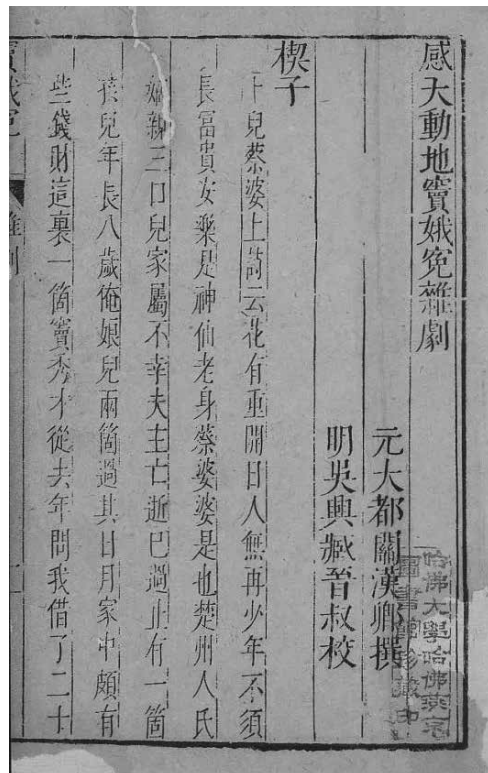 感天動地竇娥冤雜劇
元大都關漢卿撰
明吳興臧晉叔校
楔子
卜兒蔡婆上詩云花有重開日人無再少年不須
長富貴安樂是神仙老身蔡婆婆是也楚州人氏
嫡親三口兒家屬不幸夫主亡逝已過止有一箇
孩兒年長八歲俺娘兒兩箇過其日月家中頗有
些錢財這裏一箇竇秀才從去年問我借了二十
竇娥冤
雜劇
一
哈佛大學哈佛燕京
圖書館珍藏印